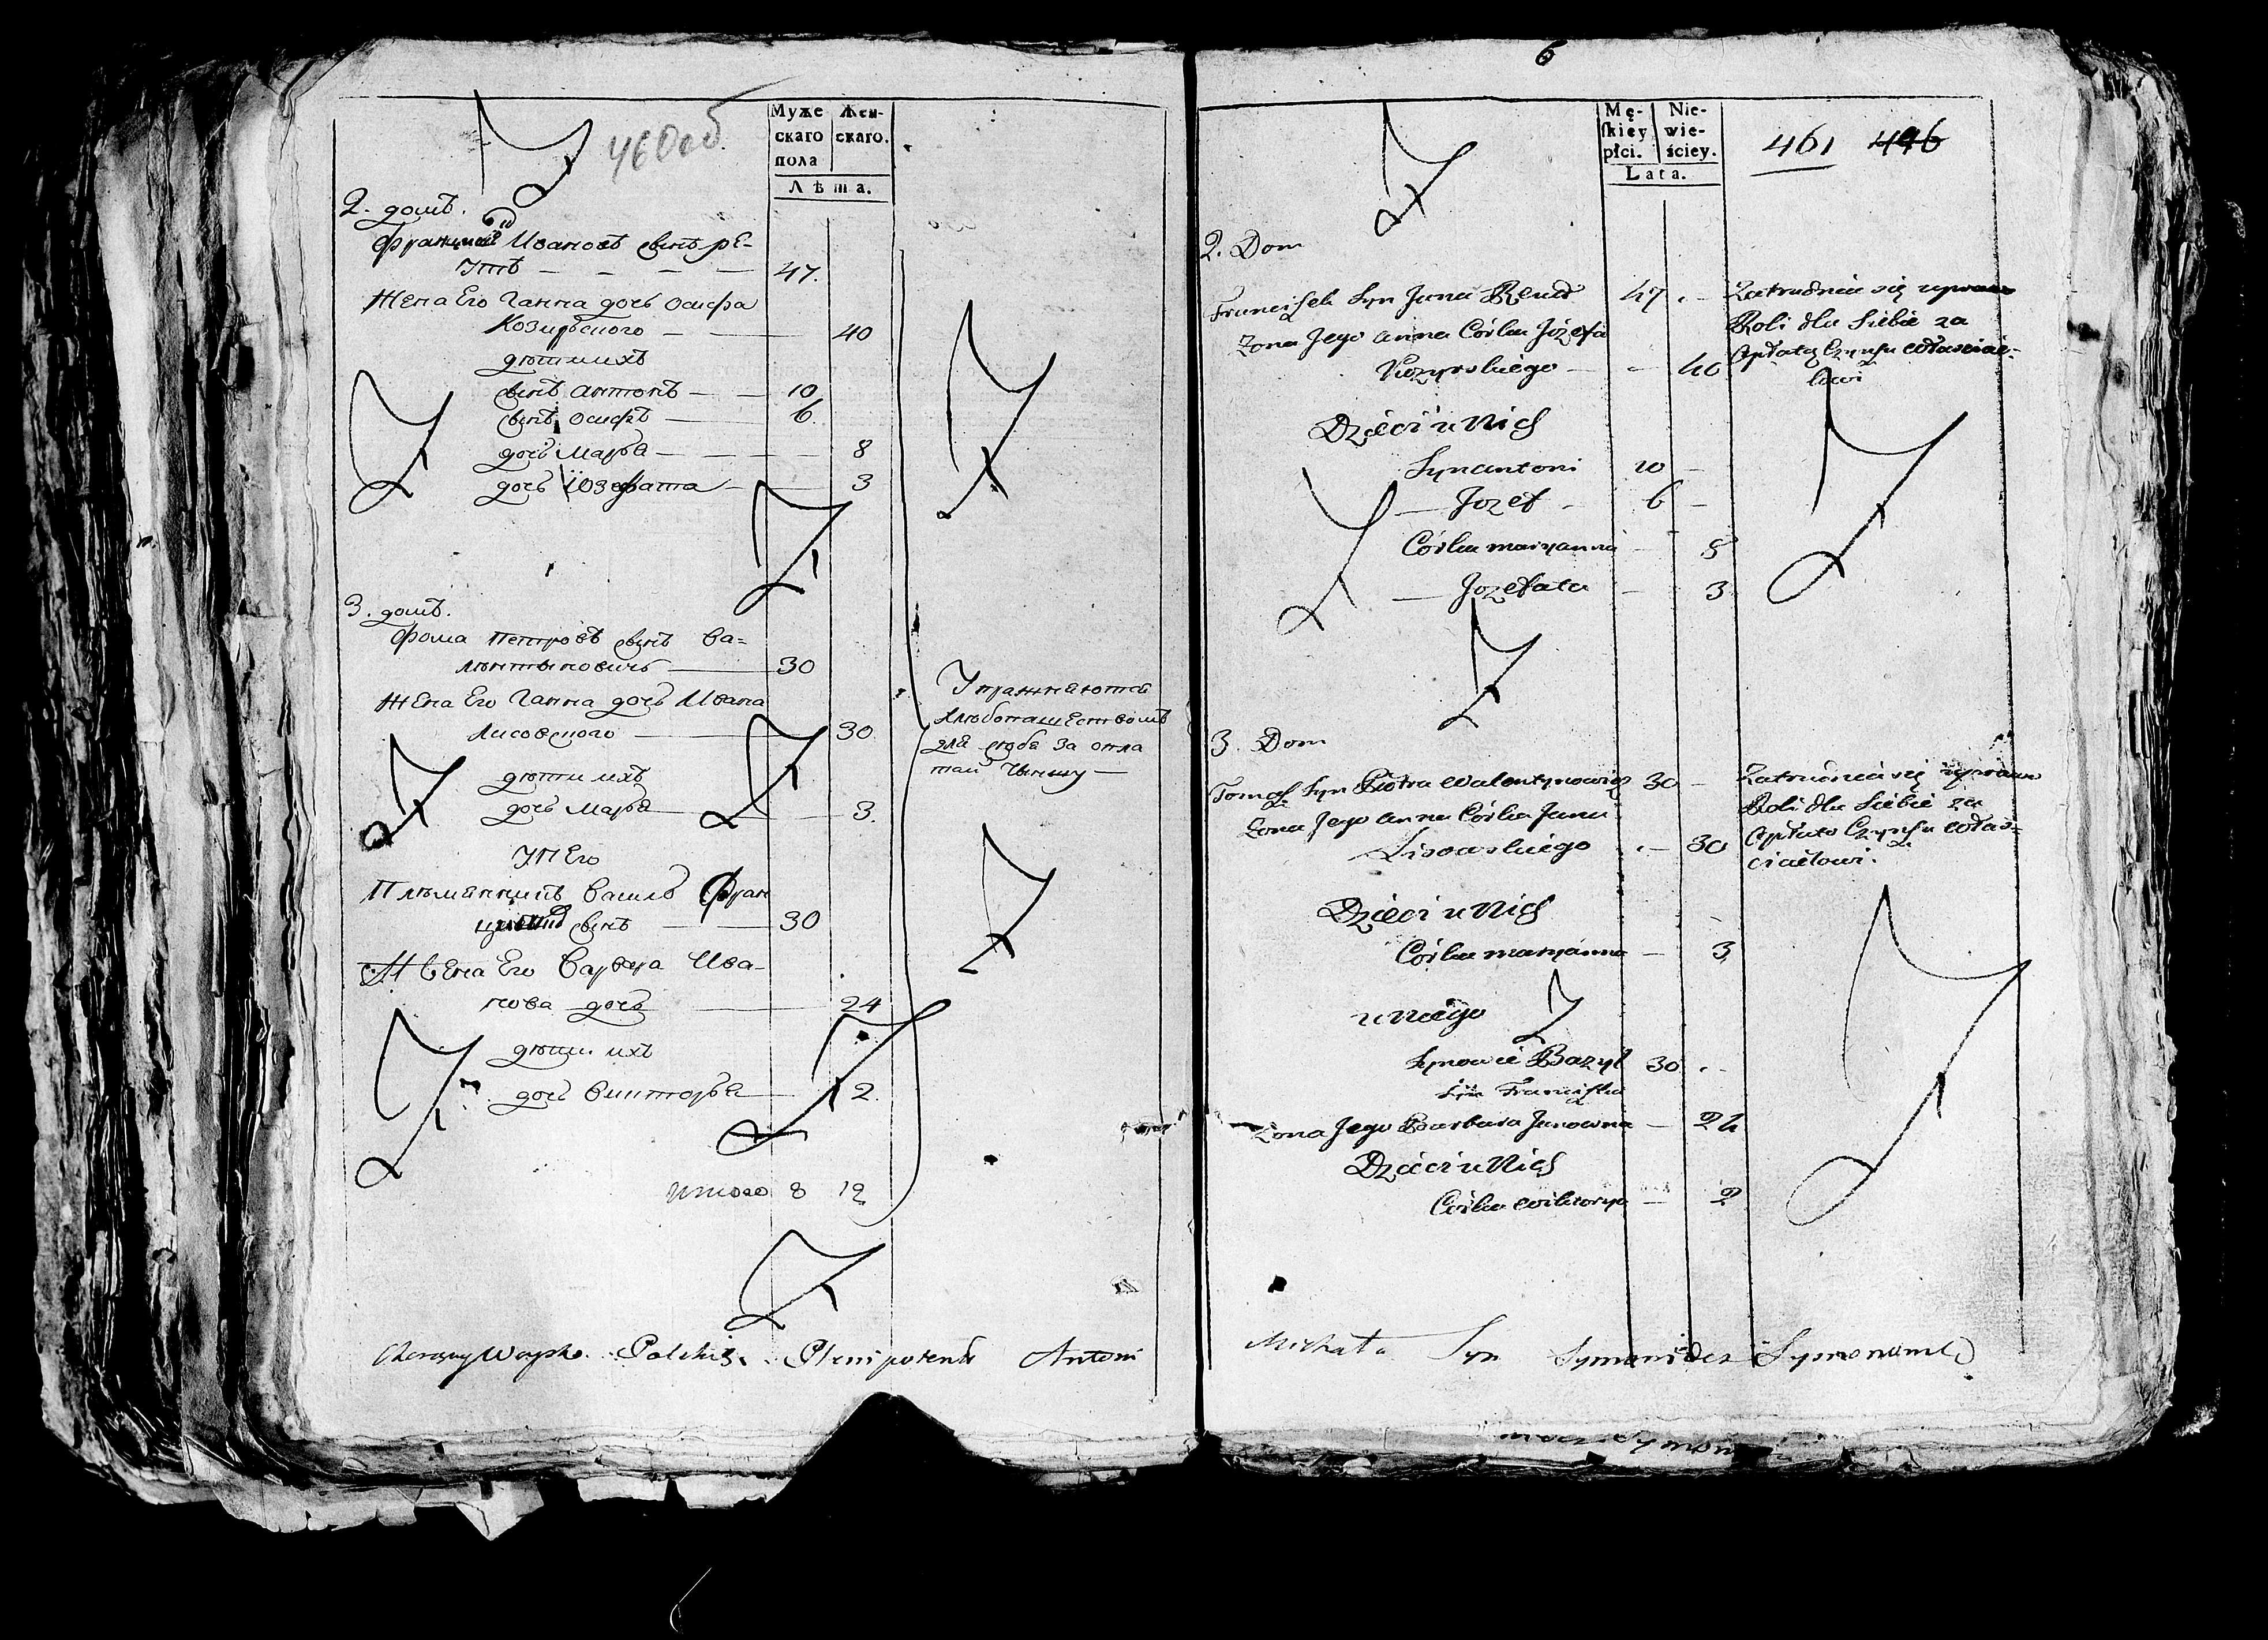 460 об
Муже
скаго
пола
Жен-
скаго.
Лѣта.
2. домъ.
Иванов сынъ Ре-
утъ — — — — 47.
Жена Его Ганна дочь Осифа
Козырского — — 40
дѣти ихъ
сынъ Антонъ — — 10
сынъ Осифъ — — 6.
дочь Марья — — — 8
дочь Юзефата — — 3
3. домъ.
Фома Петровъ сынъ Ва-
лентыновичь — 30
Жена Его Ганна дочь Ивана
Лисовского — 30
дѣти ихъ
дочь Марья — 3.
У Него
Племянникъ Василь Фран
сынъ — — 30
Жена Его Варвара Ива-
нова дочь — 24
дѣти ихъ
дочь Викторья — 2.
Итого 8 12
Упражняются
хлебопашествомъ
для себя за опла
той Чыншу —
Woysko Polskich Plenipotent Antoni
6
Mę-
skiey
płci.
Nie-
wie-
ściey.
Lata.
461 496
2. Dom
Franciszek Syn Jana Reut 47 . —
Żona Jego Anna Córka Józefa
Kozyrskiego — — 40
Dzieci u Nich
Syn Antoni 10 —
— Jozef . 6 —
Córka Maryanna — 8
— Jozefata — 3
Zatrudnia się uprawą
Roli dla Siebie za
Opłatą Czynszu Właścicie-
lowi
3. Dom
Tomasz Syn Piotra Walentynowicz 30 —
Żona Jego Anna Córka Jana
Lisowskiego . — 30
Dzieci u Nich
Córka Maryanna — 3
u Niego
Synowiec Bazyl 30 . —
Syn Franciszka
Żona Jego Barbara Janowna — 24
Dzieci u Nich
Córka Wiktorya — 2
Zatrudnia się uprawą
Roli dla Siebie za
Opłatą Czynszu Właś-
cicielowi.
Michała Syn Szymanowicz